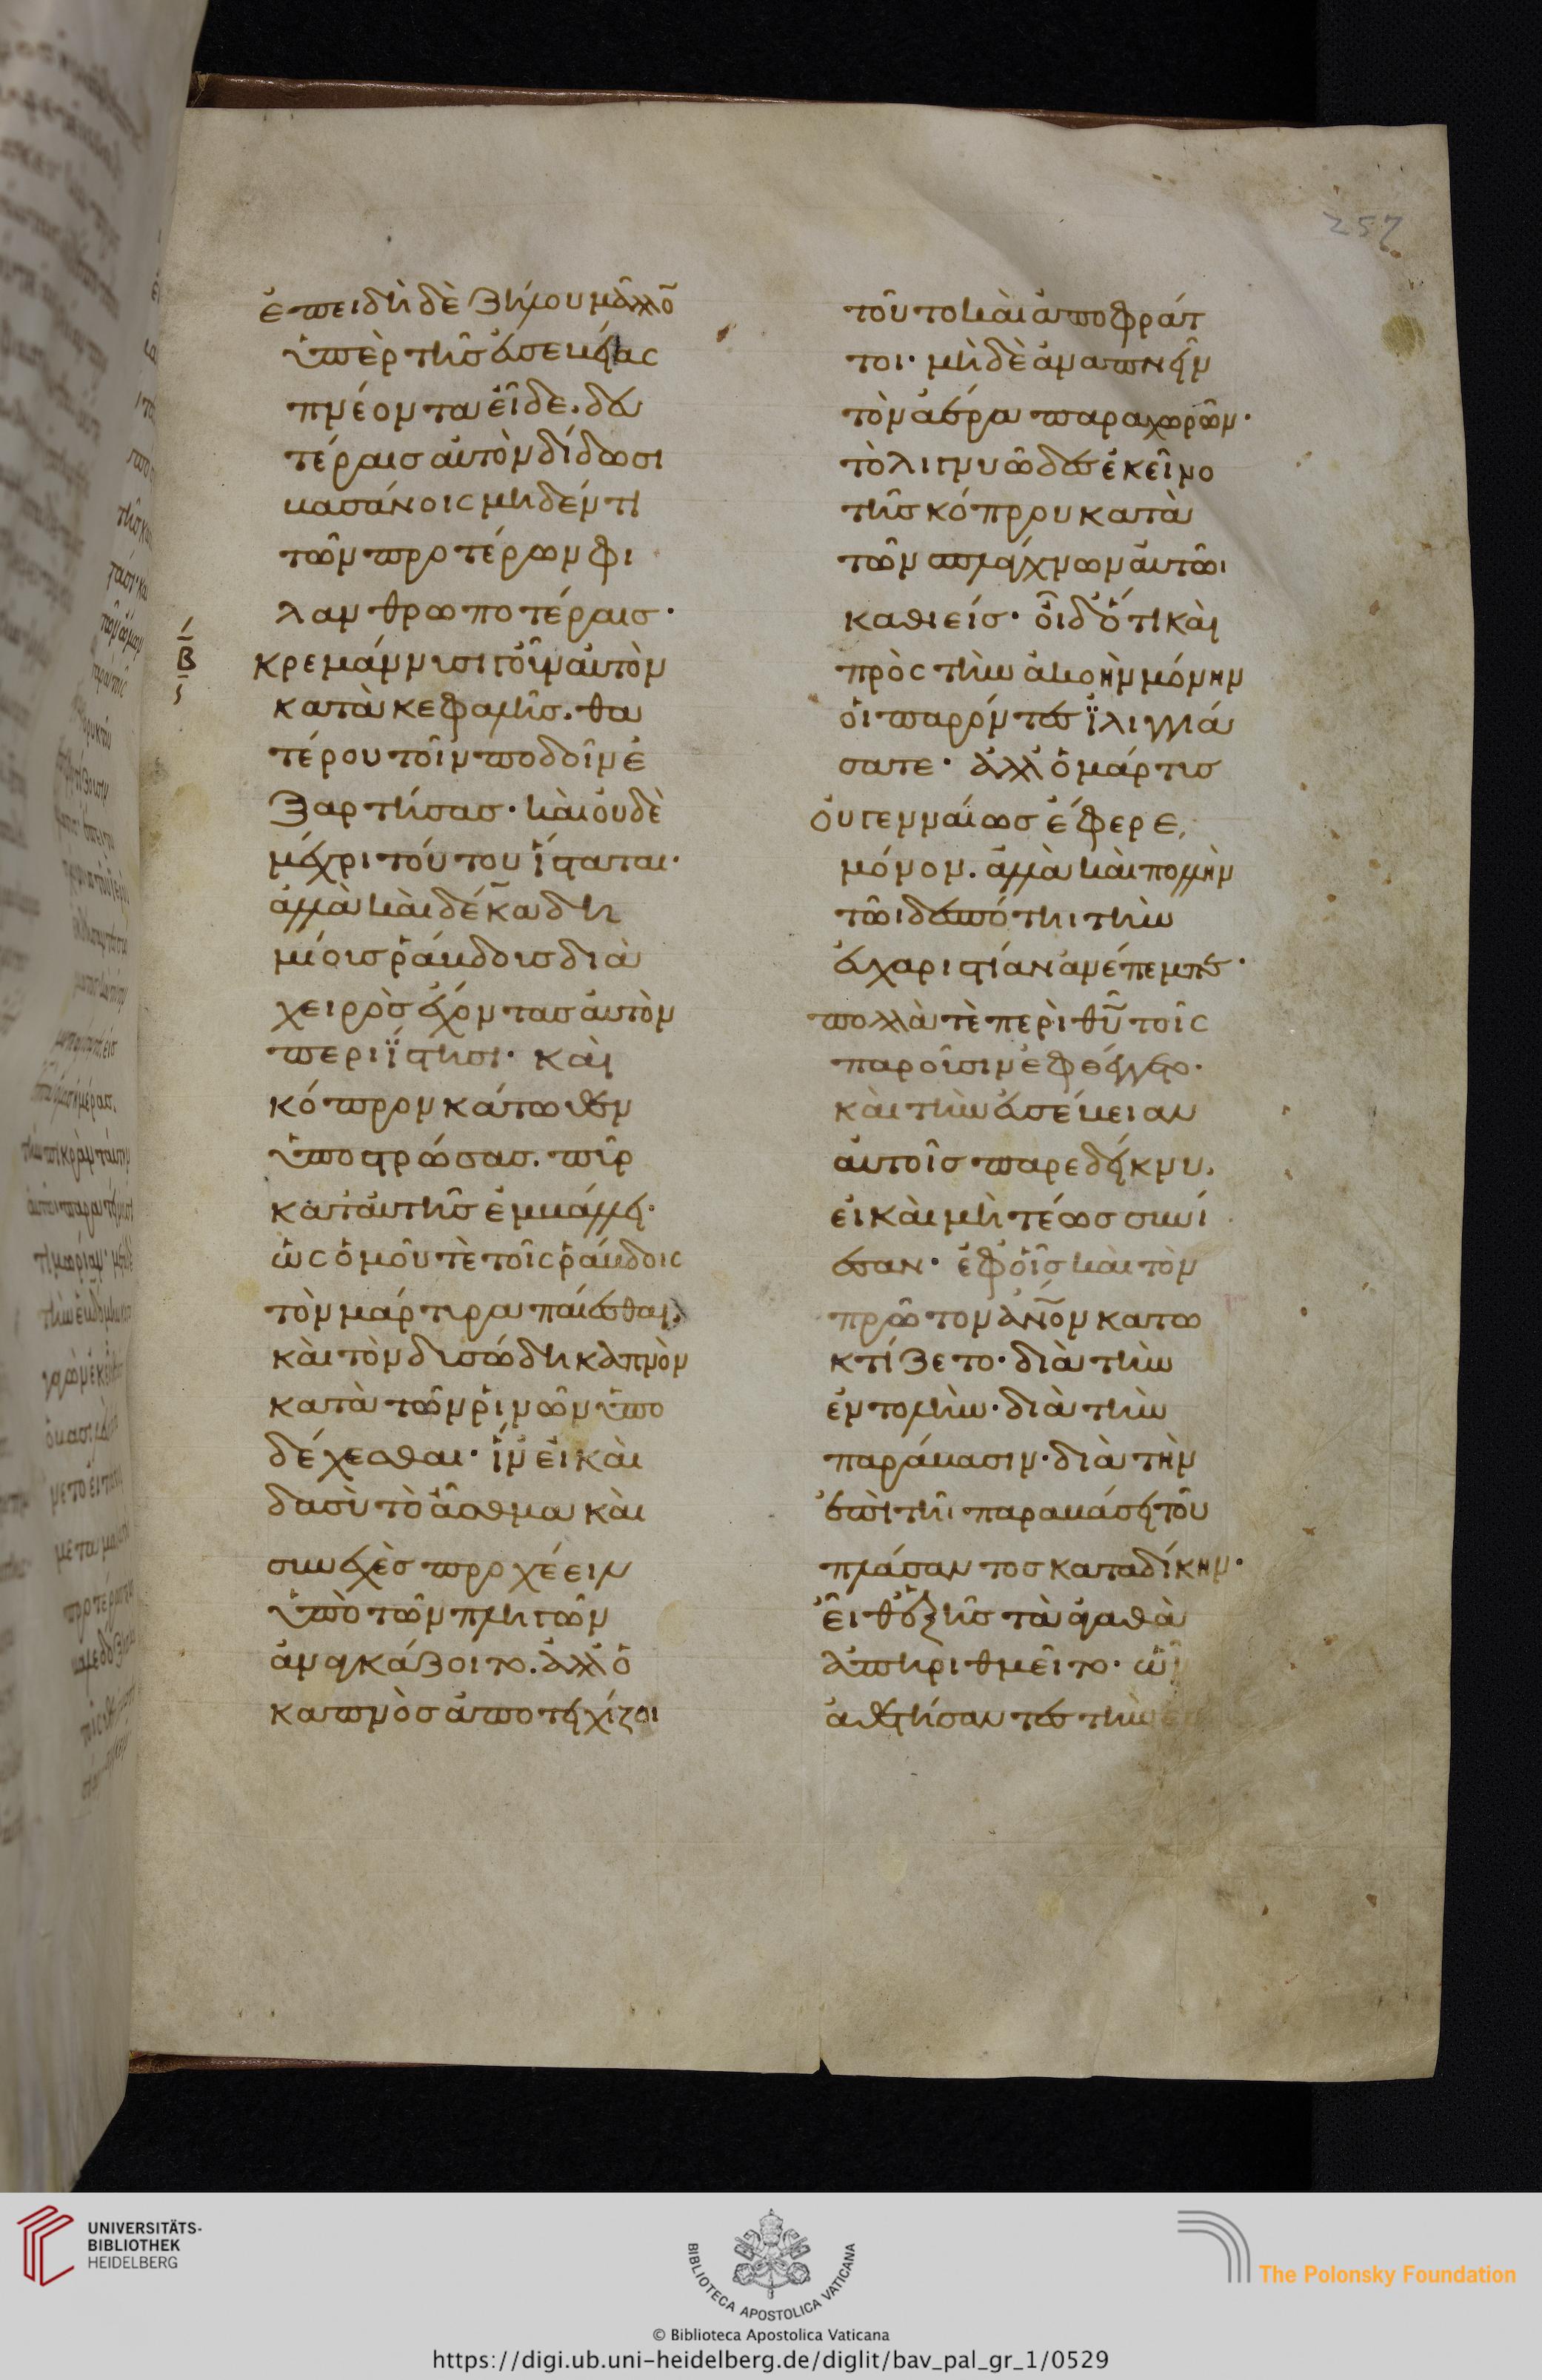 257
ἐπειδὴ δὲ ζήλου μᾶλλον
ὑπὲρ τῆς ἀσεβείας
πνέοντα εἶδε. δευ
τέραις αὐτὸν δίδωσι
βασάνοις μηδέν τι
τῶν προτέρων φι
λανθρωποτέραις·
ΙΒ
κρεμάννυσι τοίνυν αὐτὸν
κατὰ κεφαλῆς. θα
τέρου τοῖν ποδοῖν ἐ
ξαρτήσας· καὶ οὐδὲ
μέχρι τούτου ἵσταται·
ἀλλὰ καὶ δέκα δη
μίοις ῥάβδους διὰ
χειρὸς ἔχοντας αὐτὸν
περιΐστησι· καὶ
κόπρον κάτωθεν
ὑποστρώσας. πῦρ
κατ' αὐτῆς ἐμβάλλει·
ὡς ὁμοῦ τὲ τοῖς ῥάβδοις
τὸν μάρτυρα παίεσθαι.
καὶ τὸν δυσώδη καπνὸν
κατὰ τῶν ῥινῶν ὑπο
δέχεσθαι· ἵν' εἰ καὶ
δασὺ τὸ ἆσθμα καὶ
συνεχὲς προχέειν
ὑπὸ τῶν πληγῶν
ἀναγκάζοιτο. ἀλλ' ὁ
καπνὸς ἀποτειχίζοι
τοῦτο καὶ ἀποφράτ
τοι· μὴδὲ ἀναπνεῖν
τὸν ἀέρα παραχωρῶν·
τὸ λιγνυῶδες ἐκεῖνο
τῆς κόπρου κατὰ
τῶν σπλάγχνων αὐτῶι
καθιείς· οἶδ' ὅτι καὶ
πρὸς τὴν ἀκοὴν μόνην
οἱ παρόντες ἰλιγγιά
σατε· ἀλλ' ὁ μάρτυς
οὐ γενναίως ἔφερε,
μόνον. ἀλλὰ καὶ πολλὴν
τῶι δεσπότηι τὴν
εὐχαριστίαν ἀνέπεμπεν·
πολλὰ τὲ περὶ θῦ τοῖς
παροῦσιν ἐφθέγγετο.
καὶ τὴν εὐσέβειαν
αὐτοῖς παρεδείκνυ.
εἰ καὶ μὴ τέως συνί
εσαν· ἐφ' οἷς καὶ τὸν
πρῶτον ἄνον κατω
κτίζετο· διὰ τὴν
ἐντολὴν· διὰ τὴν
παράβασιν· διὰ τὴν
ἐπὶ τῆι παραβάσει τοῦ
πλάσαντος καταδίκην·
εἶθ' ἑξῆς τὰ ἀγαθὰ
ἀπηριθμεῖτο· ὧν
ἀθετήσαντες τὴν
UNIVERSITÄTS-
BIBLIOTHEK
HEIDELBERG
BIBLIOTECA APOSTOLICA VATICANA
The Polonsky Foundation
© Biblioteca Apostolica Vaticana
https://digi.ub.uni-heidelberg.de/diglit/bav_pal_gr_1/0529